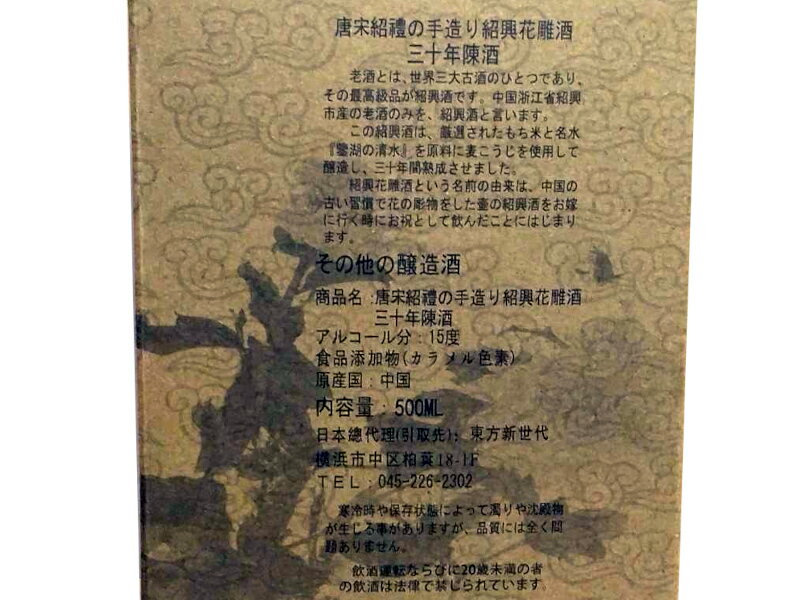 唐宋紹禮の手造り紹興花雕酒
三十年陳酒
老酒とは、世界三大古酒のひとつであり、
その最高級品が紹興酒です。中国浙江省紹興
市産の老酒のみを、紹興酒と言います。
この紹興酒は、厳選されたもち米と名水
『鑒湖の清水』を原料に麦こうじを使用して
醸造し、三十年間熟成させました。
紹興花雕酒という名前の由来は、中国の
古い習慣で花の彫物をした壷の紹興酒をお嫁
に行く時にお祝として飲んだことにはじまり
ます。
その他の醸造酒
商品名：唐宋紹禮の手造り紹興花雕酒
三十年陳酒
アルコール分：15度
食品添加物(カラメル色素)
原産国：中国
内容量：500ML
日本總代理(引取先)：東方新世代
横浜市中区柏葉18-1F
TEL：045-226-2302
寒冷時や保存状態によって濁りや沈殿物
が生じる事がありますが、品質には全く問
題ありません。
飲酒運転ならびに20歳未満の者
の飲酒は法律で禁じられています。